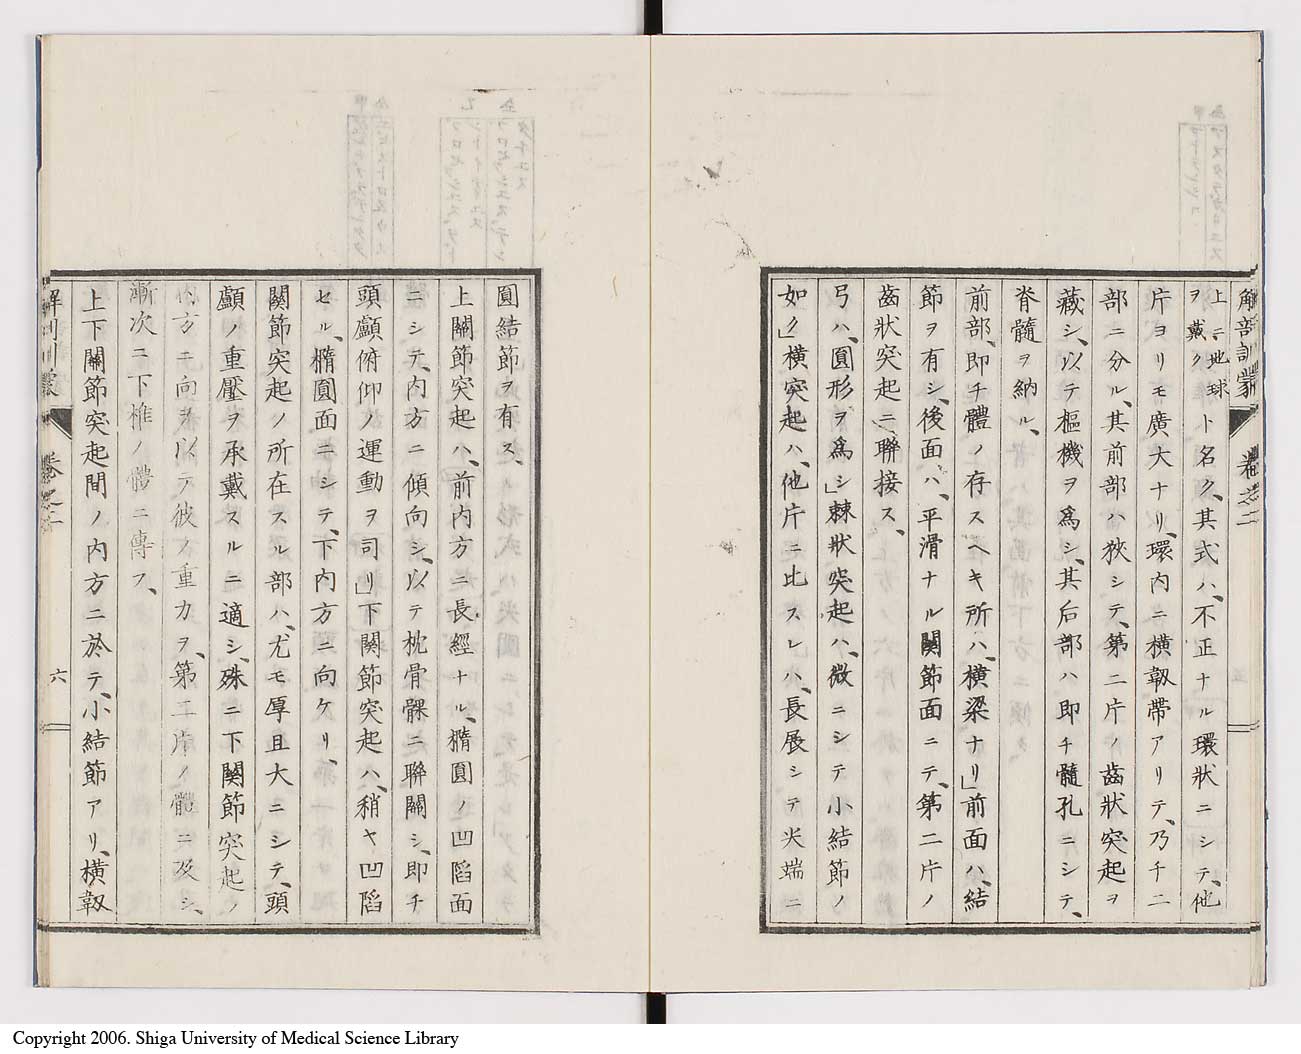 解剖訓蒙 卷之二
上ニ地球ヲ戴ク ト名ク、其式ハ、不正ナル環狀ニシテ、他
片ヨリモ廣大ナリ、環内ニ横靱帶アリテ、乃チ二
部ニ分ル、其前部ハ狹シテ、第二片ノ齒狀突起ヲ
藏シ、以テ樞機ヲ爲シ、其后部ハ即チ髓孔ニシテ、
脊髓ヲ納ル、
前部、即チ體ノ存スヘキ所ハ、横梁ナリ」前面ハ、結
節ヲ有シ、後面ハ、平滑ナル関節面ニテ、第二片ノ
齒狀突起ニ、聯接ス、
弓ハ、圓形ヲ爲シ」棘狀突起ハ、微ニシテ小結節ノ
如ク」横突起ハ、他片ニ比スレハ、長展シテ尖端ニ
圓結節ヲ有ス、
上關節突起ハ、前内方ニ長經ナル、橢圓ノ凹䧟面
ニシテ、内方ニ傾向シ、以テ枕骨髁ニ聯關シ、即チ
頭顱俯仰ノ運動ヲ司リ」下関節突起ハ、稍ヤ凹䧟
セル、橢圓面ニシテ、下内方ニ向ケリ、
関節突起ノ所在スル部ハ、尤モ厚且大ニシテ、頭
顱ノ重壓ヲ承戴スルニ適シ、殊ニ下関節突起ノ
内方ニ向ヒ以テ彼ノ重力ヲ、第二片ノ體ニ及シ、
漸次ニ下椎ノ體ニ傳フ、
上下關節突起間ノ内方ニ於テ、小結節アリ、横靱
解剖訓蒙 卷之二 六
Copyright 2006. Shiga University of Medical Science Library